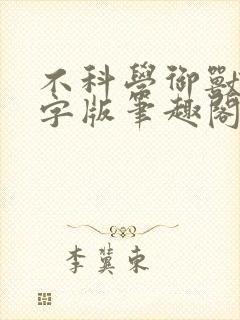 不科學御獸
字版筆趣閣
李冀東